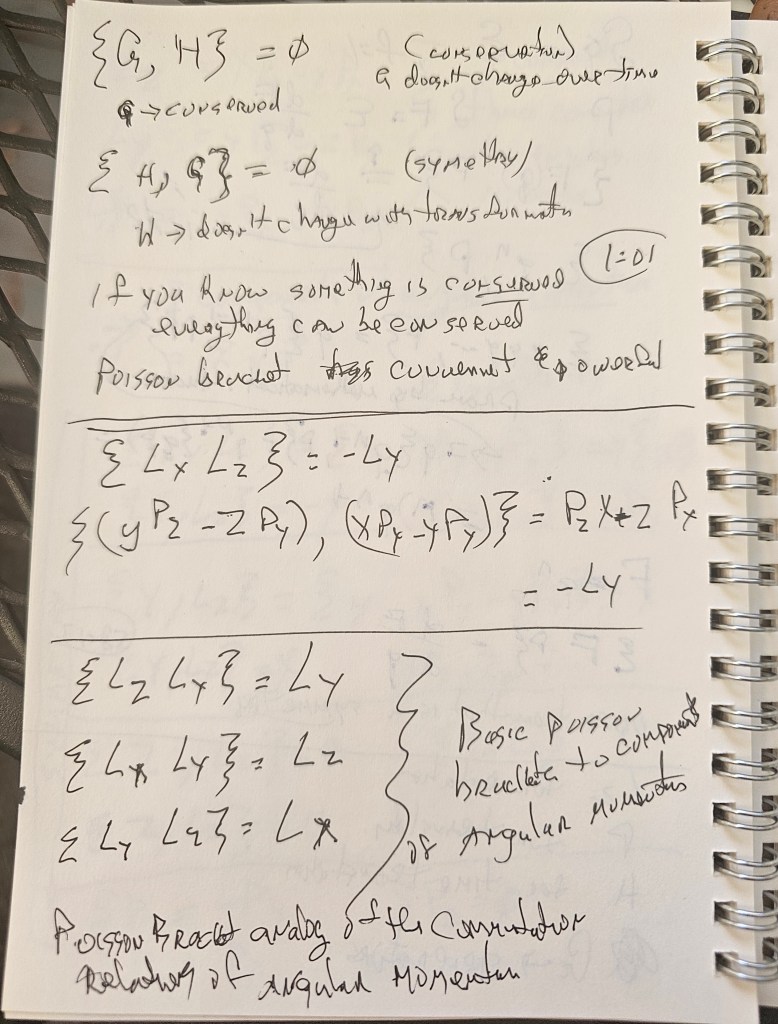 {G, H} = ∅ (conservation)
G doesn't change over time
G → conserved
{H, G} = ∅ (symethry)
H → doesn't change with transformatn
If you know something is conserved 1:01
everything can be conserved
Poisson bracket convenent & powerful
{Lx Lz} = -Ly
{(yPz - zPy), (xPy - yPx)} = Pz x + z Px
= -Ly
{Lz Lx} = Ly
{Lx Ly} = Lz
{Ly Lz} = Lx
Basic Poisson
brackets to components
of Angular Momentus
Poisson Bracket analog of the Commutation
Relations of angular Momentum